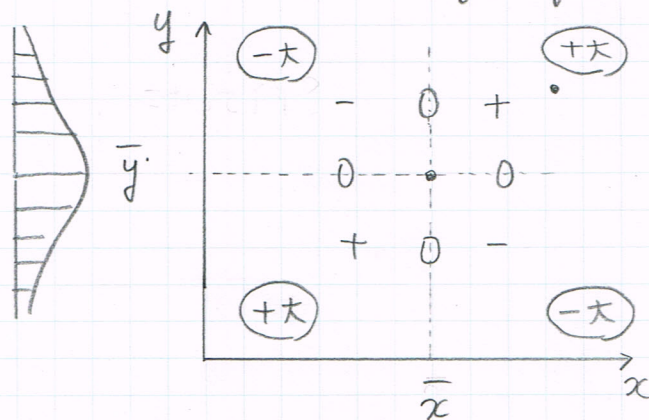 y
-大 +大
- 0 +
ȳ 0 0
+ 0 -
+大 -大
x̄ x